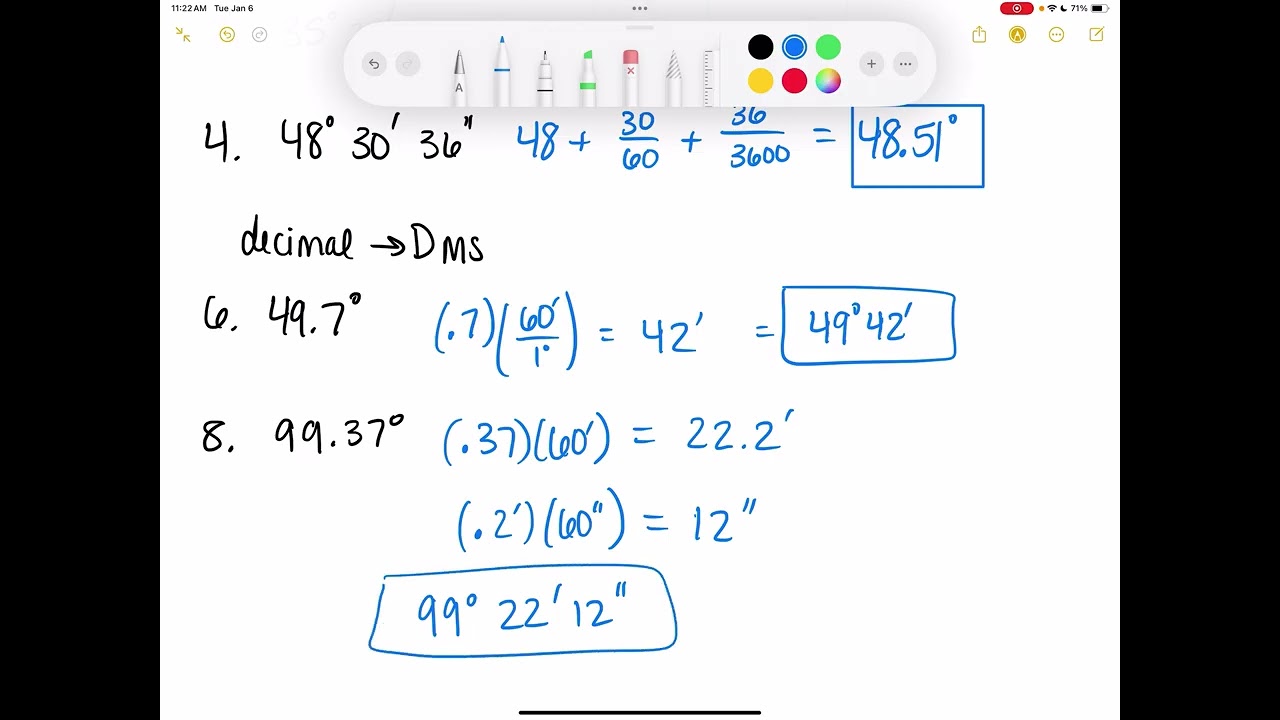 11:22 AM Tue Jan 6 71%
A
4. 48° 30′ 36″ 48 + 30/60 + 36/3600 = 48.51°
decimal → DMS
6. 49.7° (.7)(60′/1°) = 42′ = 49°42′
8. 99.37° (.37)(60′) = 22.2′
(.2′)(60″) = 12″
99° 22′ 12″